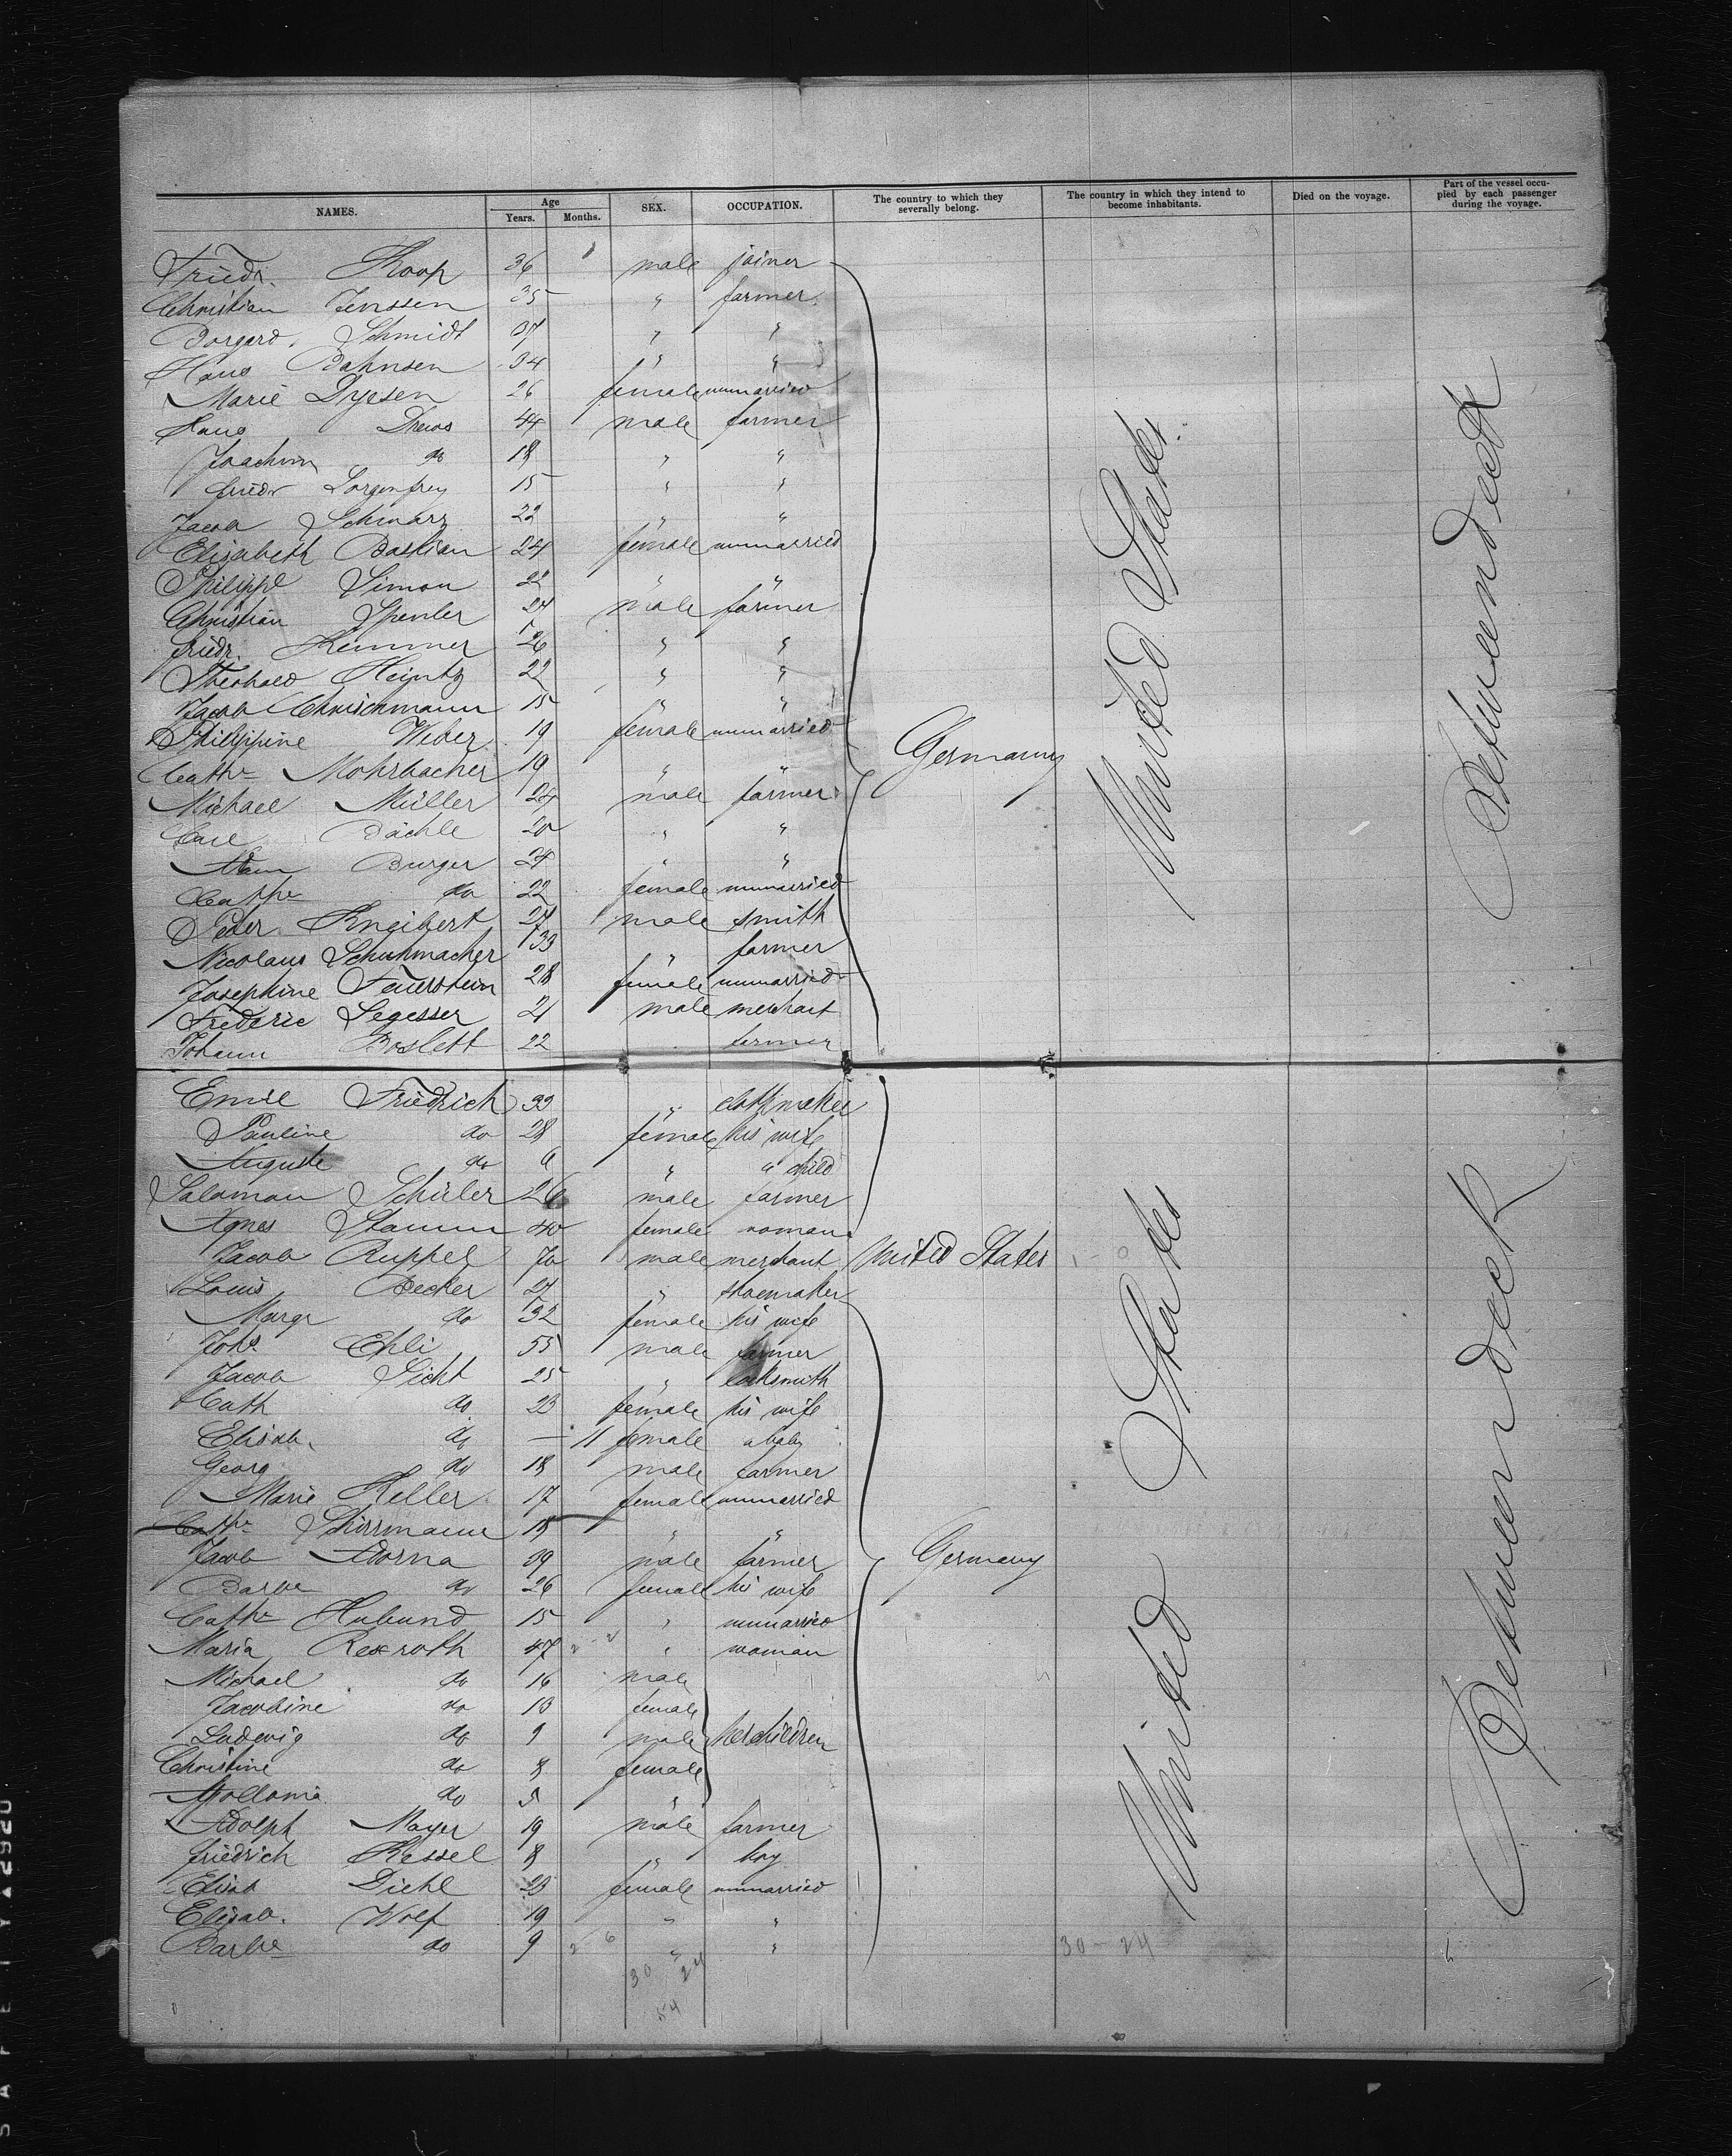 NAMES. Age Years. Months. SEX. OCCUPATION. The country to which they severally belong. The country in which they intend to become inhabitants. Died on the voyage. Part of the vessel occupied by each passenger during the voyage.
Friedr. Koop 36 male joiner
Christian Jenssen 35 " farmer
Schmidt 37 " "
Hans Bahnsen 34 " "
Marie 26 female unmarried
Hans Drews 44 male farmer
Joachim do 18 " "
Friedr Sorgenfrey 15 " "
Jacob Schwarz 22 " "
Elizabeth Bastian 24 female unmarried
Philippe Simon 22 " "
Christian Spenler 24 male farmer
Friedr. Kemmer 26 " "
Theobald Heintz 22 " "
Jacob Chrischmann 15 " "
Philippine Weber 19 female unmarried
Cathe Mohrbacher 19 " "
Germany
Michael Müller 24 male farmer
Carl Bächle 20 " "
Adam Burger 24 " "
Cathe do 22 female unmarried
Peter Kneibert 27 male smith
Nicolaus Schuhmacher 33 " farmer
Josephine Feuerstein 28 female unmarried
Frederic Segesser 21 male merchant
Johann Boslett 22 farmer
United States.
Between deck
Emil Friedrich 33 " clothmaker
Pauline do 28 female his wife
Auguste do 6 " " child
Salomon Schüler 26 male farmer
Agnes Stamm 40 female woman
Jacob Ruppel 70 male merchant United States
Louis Becker 27 " shoemaker
Margr do 32 female his wife
Johs Ehli 55 male farmer
Jacob Licht 25 " locksmith
Cath do 23 female his wife
Elisab. do — 11 female a baby
Georg do 18 male farmer
Marie Keller 17 female unmarried
Cathe Schirrmann 18 " "
Jacob Adorna 39 male farmer Germany
Barbe do 26 female his wife
Cathe Hubund 15 " unmarried
Maria Rexroth 47 " woman
Michael do 16 male
Jacobine do 13 female
Ludwig do 9 male her children
Christine do 8 female
do 5 "
Adolph Mayer 19 male farmer
Friedrich Kessel 8 " boy
Elisab Diehl 23 female unmarried
Elisab. Wolf 19 " "
Barbe do 9 " "
30 24
54
30-24
United States
Between deck